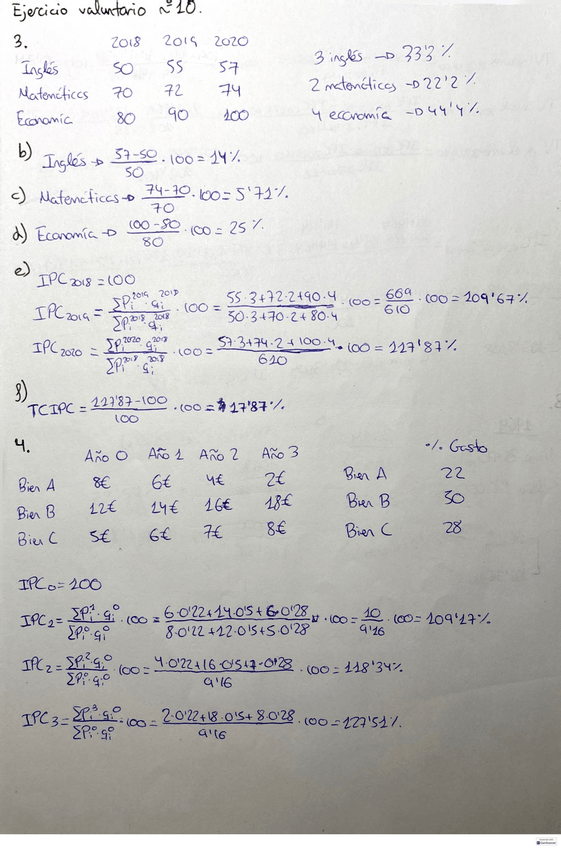 Ejercicio voluntario nº10.
3. 2018 2019 2020
Inglés 50 55 57 3 inglés → 33'3%
Matemáticas 70 72 74 2 matemáticas → 22'2%
Economía 80 90 100 4 economía → 44'4%
b) Inglés → (57-50)/50 · 100 = 14%
c) Matemáticas → (74-70)/70 · 100 = 5'71%.
d) Economía → (100-80)/80 · 100 = 25%
e) IPC2018 = 100
IPC2019 = ΣPi^2019 · qi^2018 / ΣPi^2018 · qi^2018 · 100 = (55·3+72·2+90·4)/(50·3+70·2+80·4) · 100 = 669/610 · 100 = 109'67%
IPC2020 = ΣPi^2020 · qi^2018 / ΣPi^2018 · qi^2018 · 100 = (57·3+74·2+100·4)/610 · 100 = 117'87%.
f) TCIPC = (117'87-100)/100 · 100 = 17'87%.
4. Año 0 Año 1 Año 2 Año 3 % Gasto
Bien A 8€ 6€ 4€ 2€ Bien A 22
Bien B 12€ 14€ 16€ 18€ Bien B 50
Bien C 5€ 6€ 7€ 8€ Bien C 28
IPC0 = 100
IPC1 = ΣPi^1 · qi^0 / ΣPi^0 · qi^0 · 100 = (6·0'22+14·0'5+6·0'28)/(8·0'22+12·0'5+5·0'28) · 100 = 10/9'16 · 100 = 109'17%
IPC2 = ΣPi^2 · qi^0 / ΣPi^0 · qi^0 · 100 = (4·0'22+16·0'5+7·0'28)/9'16 · 100 = 118'34%
IPC3 = ΣPi^3 · qi^0 / ΣPi^0 · qi^0 · 100 = (2·0'22+18·0'5+8·0'28)/9'16 · 100 = 127'51%.